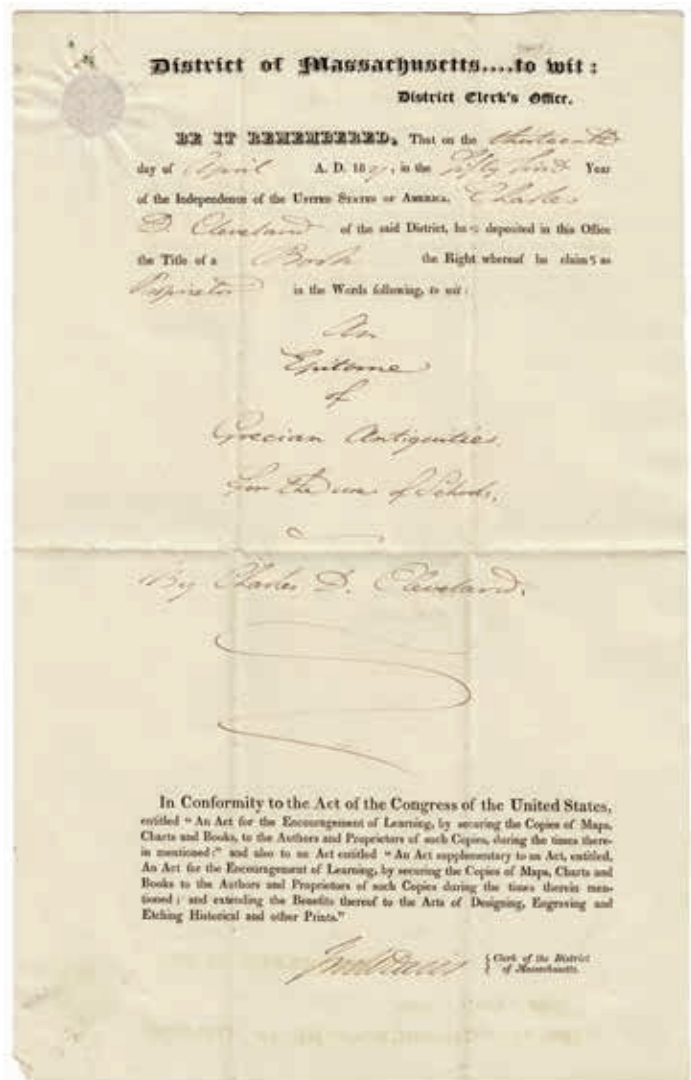 District of Massachusetts....to wit:
District Clerk's Office.
BE IT REMEMBERED, That on the thirteenth
day of April A. D. 182, in the fifty first Year
of the Independence of the UNITED STATES OF AMERICA, Charles
D. Cleveland of the said District, has deposited in this Office
the Title of a Book the Right whereof he claims as
Proprietor in the Words following, to wit:
An
Epitome
of
Grecian Antiquities.
For the use of Schools.
By Charles D. Cleveland.
In Conformity to the Act of the Congress of the United States,
entitled "An Act for the Encouragement of Learning, by securing the Copies of Maps,
Charts and Books, to the Authors and Proprietors of such Copies, during the times there-
in mentioned:" and also to an Act entitled "An Act supplementary to an Act, entitled,
An Act for the Encouragement of Learning, by securing the Copies of Maps, Charts and
Books to the Authors and Proprietors of such Copies during the times therein men-
tioned; and extending the Benefits thereof to the Arts of Designing, Engraving and
Etching Historical and other Prints."
Jno W Davis { Clerk of the District
of Massachusetts.